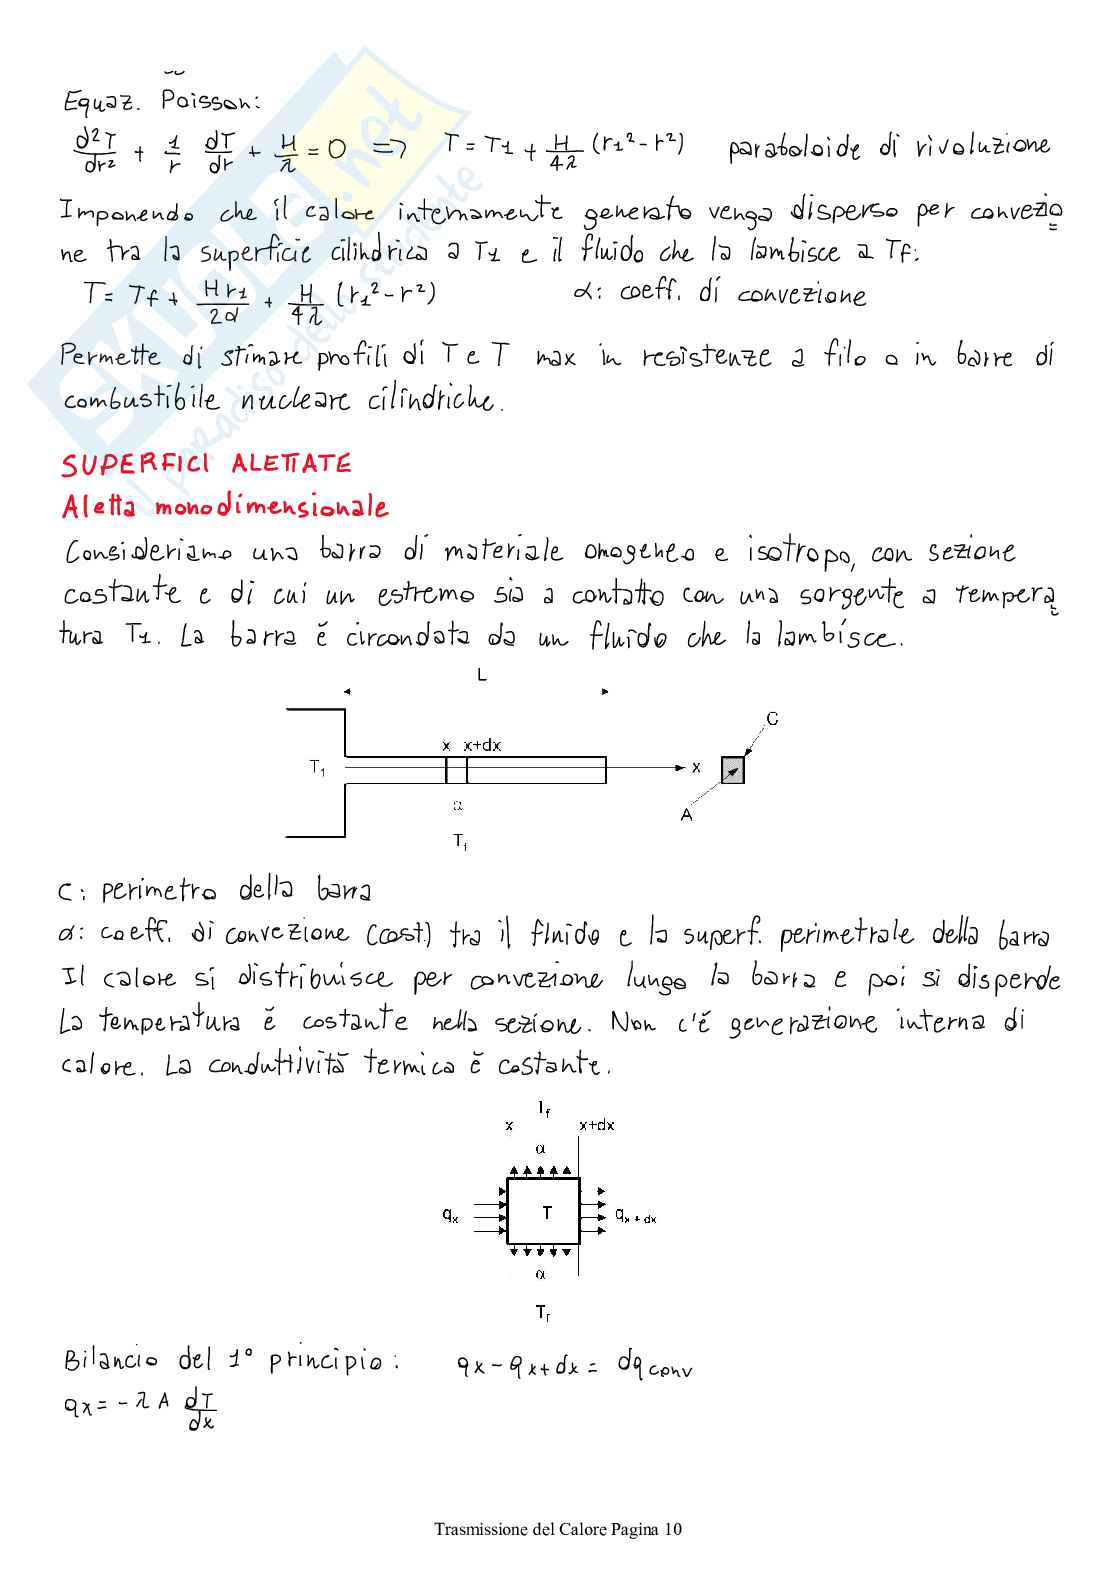 Equaz. Poisson:
d²T/dr² + 1/r dT/dr + H/λ = 0 => T = T1 + H/4λ (r1² - r²) paraboloide di rivoluzione
Imponendo che il calore internamente generato venga disperso per convezio
ne tra la superficie cilindrica a T1 e il fluido che la lambisce a Tf:
T = Tf + Hr1/2α + H/4λ (r1² - r²) α: coeff. di convezione
Permette di stimare profili di T e T max in resistenze a filo o in barre di
combustibile nucleare cilindriche.
SUPERFICI ALETTATE
Aletta monodimensionale
Consideriamo una barra di materiale omogeneo e isotropo, con sezione
costante e di cui un estremo sia a contatto con una sorgente a tempera
tura T1. La barra è circondata da un fluido che la lambisce.
L
C
x x+dx
T1 x
α
A
Tf
C: perimetro della barra
α: coeff. di convezione (cost.) tra il fluido e la superf. perimetrale della barra
Il calore si distribuisce per convezione lungo la barra e poi si disperde
La temperatura è costante nella sezione. Non c'è generazione interna di
calore. La conduttività termica è costante.
Tf
x x+dx
α
qx T qx + dx
α
Tf
Bilancio del 1° principio: qx - qx+dx = dq conv
qx = - λ A dT/dx
Trasmissione del Calore Pagina 10
SKUOLA.net
il paradiso dello studente